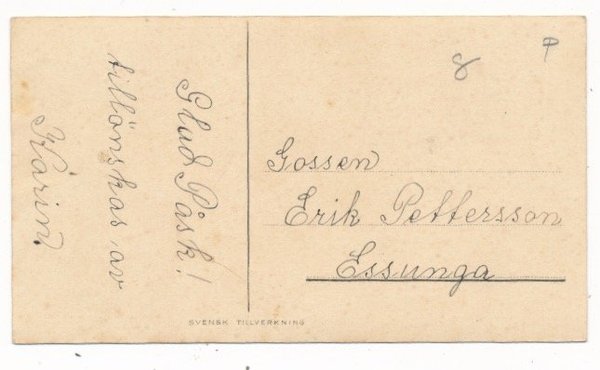 Glad Påsk!
tillönskas av
Karin.
Gossen
Erik Pettersson
Essunga
SVENSK TILLVERKNING